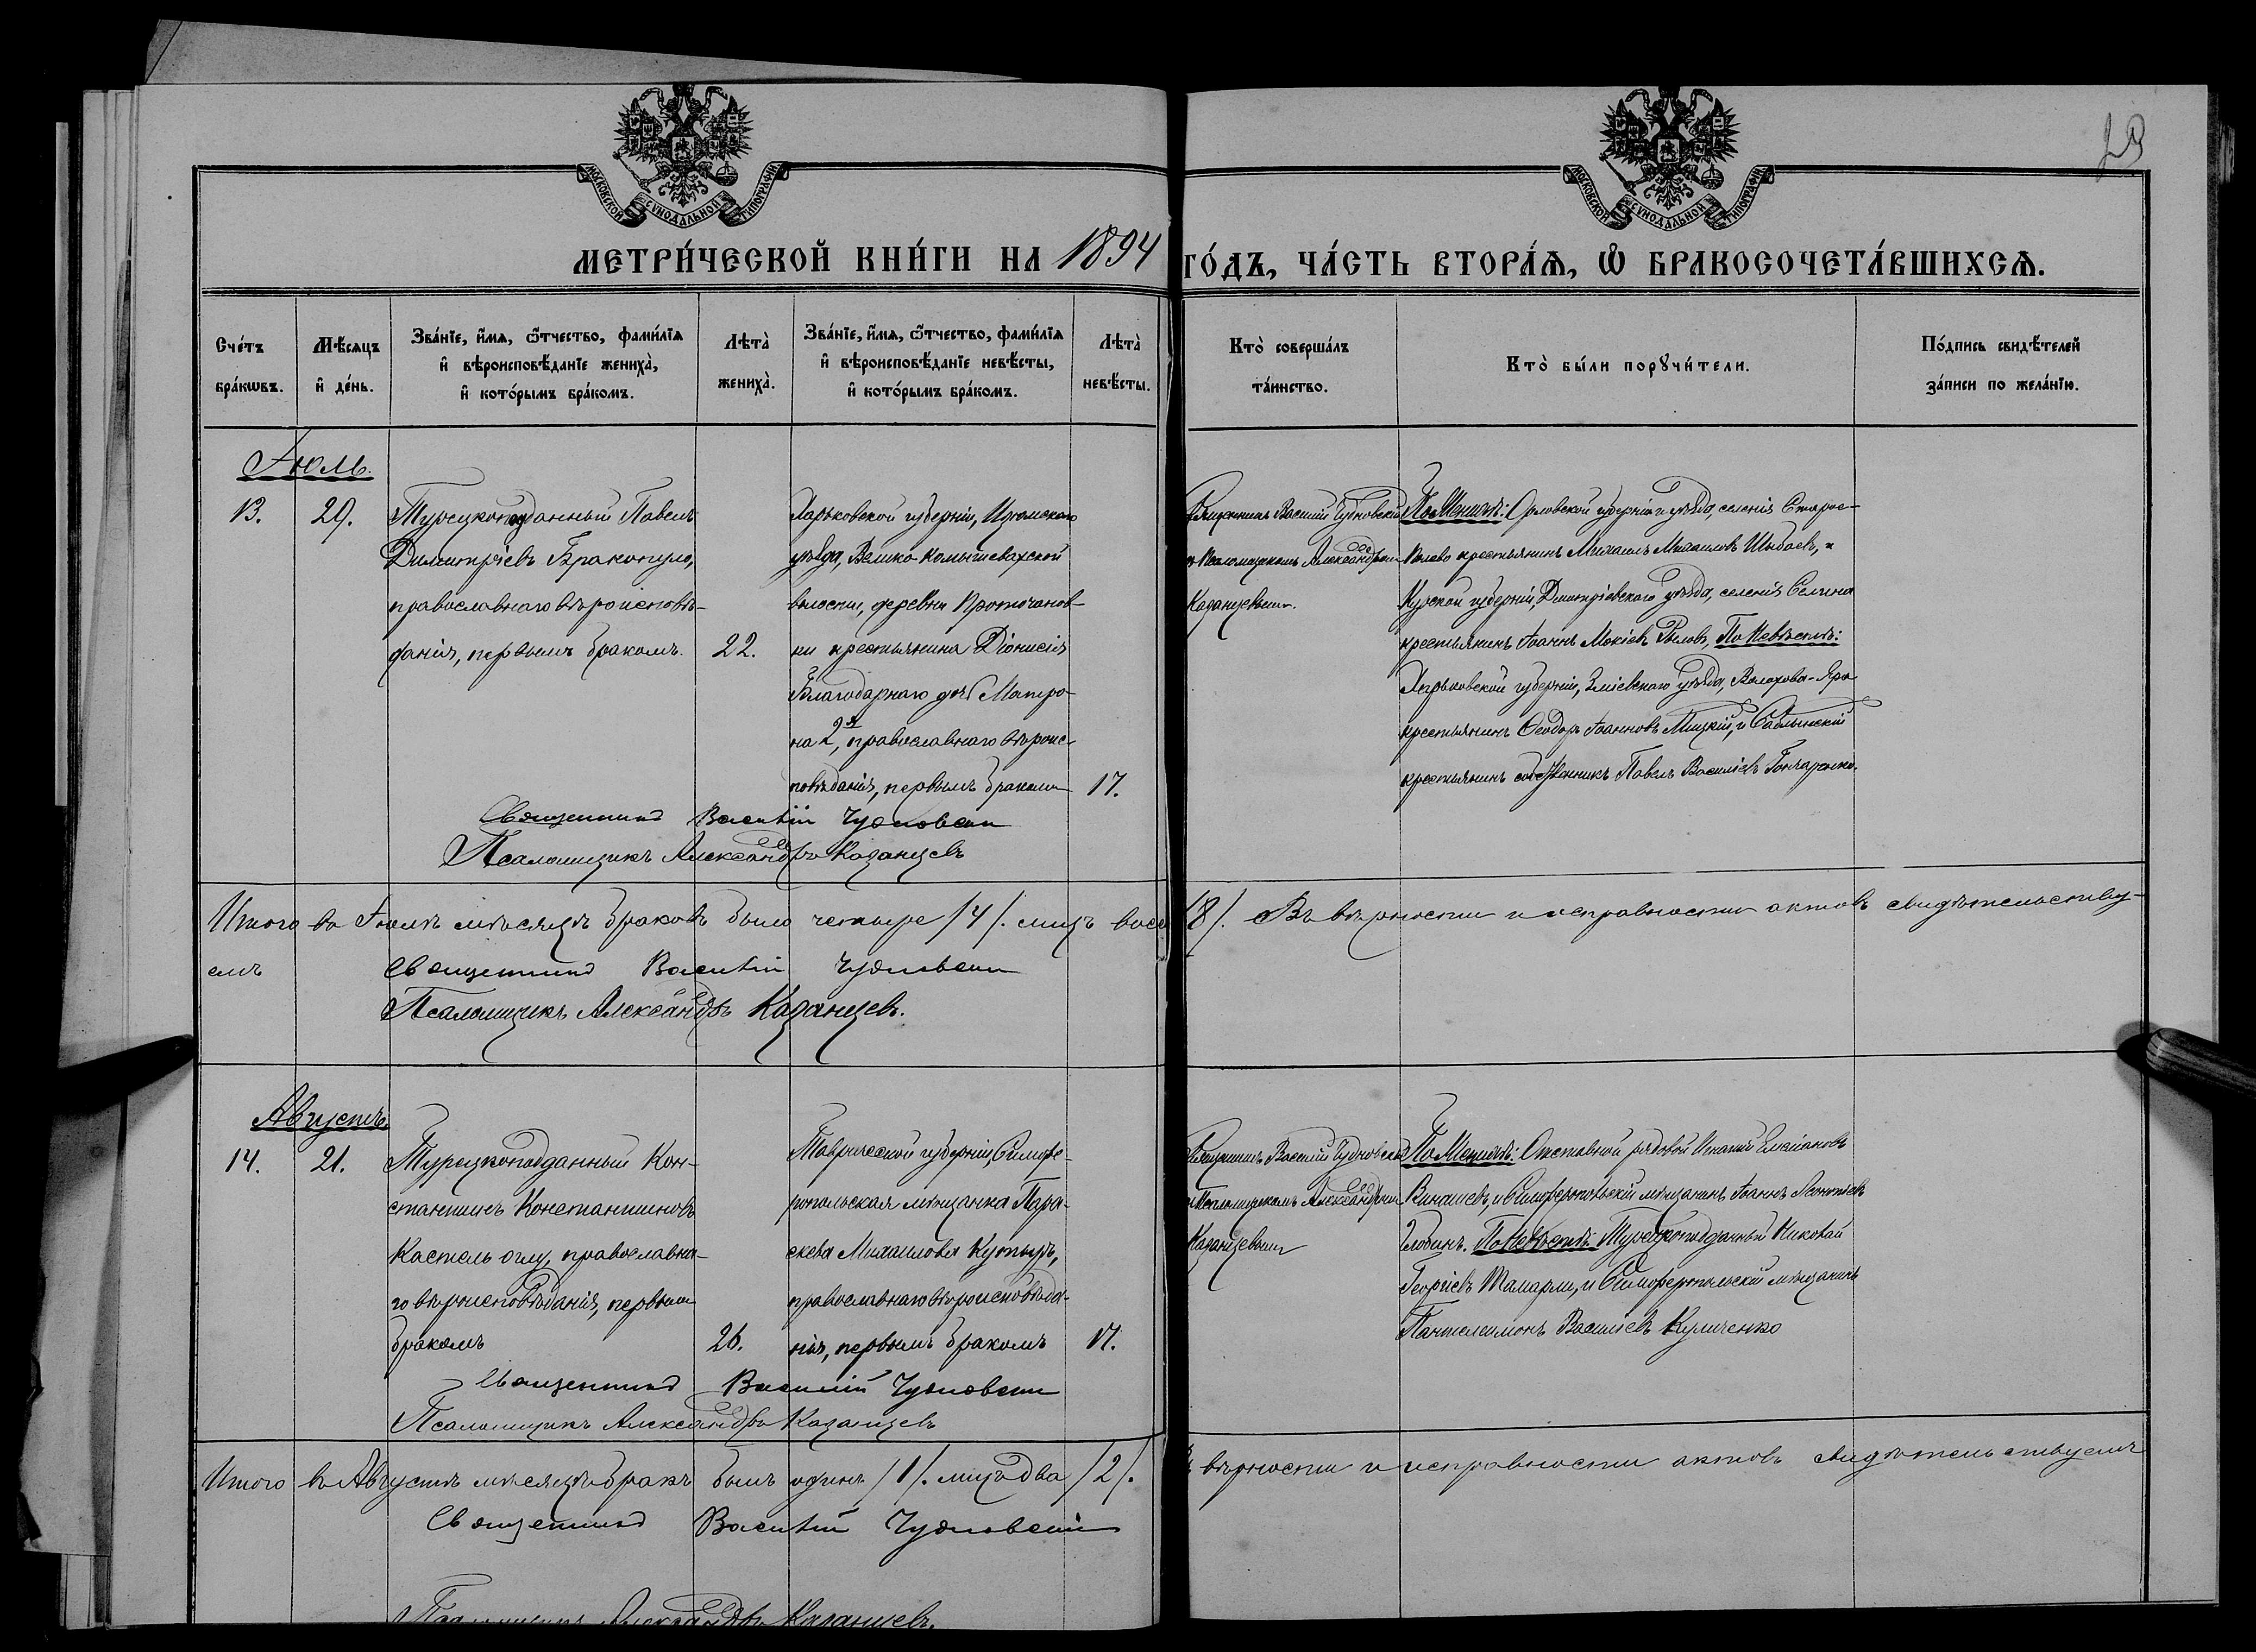 29
МОСКОВСКОЙ СУНОДАЛЬНОЙ ТИПОГРАФІИ
МОСКОВСКОЙ СУНОДАЛЬНОЙ ТИПОГРАФІИ
МЕТРИ́ЧЕСКОЙ КНИ́ГИ НА 1894 ГО́ДЪ, ЧА́СТЬ ВТОРА́Ѧ, Ѽ БРАКОСОЧЕТА́ВШИХСѦ.
Сче́тъ
бра́кѡвъ.
Мѣ́сяцъ
и҆ де́нь.
Зва́нїе, и҆́мѧ, ѻ҆́тчество, фами́лїѧ
и҆ вѣроисповѣ́данїе жениха̀,
и҆ кото́рымъ бра́комъ.
Лѣта̀
жениха̀.
Зва́нїе, и҆́мѧ, ѻ҆́тчество, фами́лїѧ
и҆ вѣроисповѣ́данїе невѣ́сты,
и҆ кото́рымъ бра́комъ.
Лѣта̀
невѣ́сты.
Кто̀ соверша́лъ
та́инство.
Кто̀ бы́ли порꙋчи́тели.
По́дпись свидѣ́телей
за́писи по жела́нїю.
Іюль.
13.
29.
Турецкоподданный Павелъ
Димитріевъ Бракопуло,
православнаго вѣроисповѣ-
данія, первымъ бракомъ.
22.
Харьковской губерніи, Изюмскаго
уѣзда, Велико-Комышевахской
волости, деревни Протопанов-
ки крестьянина Діонисія
Благодарнаго дочь Матро-
на 2я, православнаго вѣроис-
повѣданія, первымъ бракомъ
17.
Священникъ Василій Чудновскій
и Псаломщикомъ Александромъ
Казанцевымъ.
По Женихѣ: Орловской губерніи и уѣзда, селенія Старое-
крестьянинъ Михаилъ Михаиловъ и
Курской губерніи, Дмитріевскаго уѣзда, селенія Селина
крестьянинъ Іоаннъ Рыловъ, По Невѣстѣ:
Харьковской губерніи, Зміевскаго уѣзда, Волохова-Яра
крестьянинъ Ѳеодоръ Іоанновъ и
крестьянинъ собственникъ Павелъ Василіевъ Гончаренко.
Священникъ Василій Чудновскій
Псаломщикъ Александръ Казанцевъ
Итого въ Іюлѣ мѣсяцѣ браковъ было четыре /4/. лицъ /8/. Въ вѣрности и исправности актовъ свидѣтельству-
емъ
Священникъ Василій Чудновскій
Псаломщикъ Александръ Казанцевъ.
Августъ
14.
21.
Турецкоподданный Кон-
стантинъ Константиновъ
Кастель оглу, православна-
го вѣроисповѣданія, первымъ
бракомъ
26.
Таврической губерніи, Симфе-
ропольская мѣщанка Пара-
скева Михаилова
православнаго вѣроисповѣда-
нія, первымъ бракомъ
17.
Священникъ Василій Чудновскій
и Псаломщикомъ Александромъ
Казанцевымъ
По Женихѣ: Отставной рядовой Игнатій
и Симферопольскій мѣщанинъ Іоаннъ Леонтіевъ
По Невѣстѣ: Турецкоподданный Николай
Георгіевъ и Симферопольскій мѣщанинъ
Пантелеимонъ Василіевъ Куличенко
Священникъ Василій Чудновскій
Псаломщикъ Александръ Казанцевъ
Итого въ Августѣ мѣсяцѣ бракъ былъ одинъ /1/. лицъ два /2/. вѣрности и исправности актовъ свидѣтельствуемъ
Священникъ Василій Чудновскій
Псаломщикъ Александръ Казанцевъ.